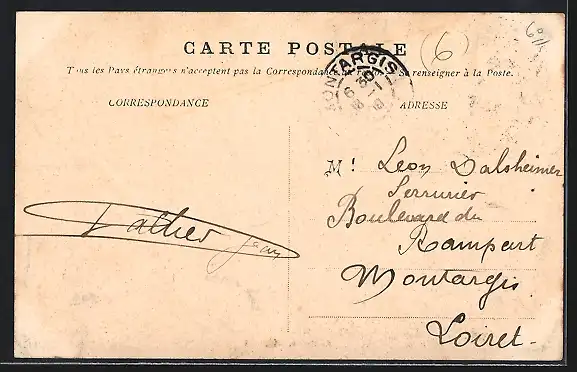 CARTE POSTALE
Tous les Pays étrangers n'acceptent pas la Correspondance au recto. Se renseigner à la Poste.
CORRESPONDANCE
ADRESSE
MONTARGIS
6 30
(6)
Mr Leon Dalsheimer
Serrurier
Boulevard du
Rampart
Montargis
Loiret.
Jean